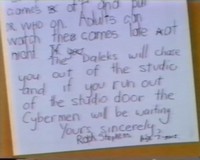 comes at and put
Dr who on. Adults can
watch the comes late at
night. The Daleks will chase
you out of the studio
and if you run out
of the studio door the
Cybermen will be waiting
Yours sincerely
Stephen